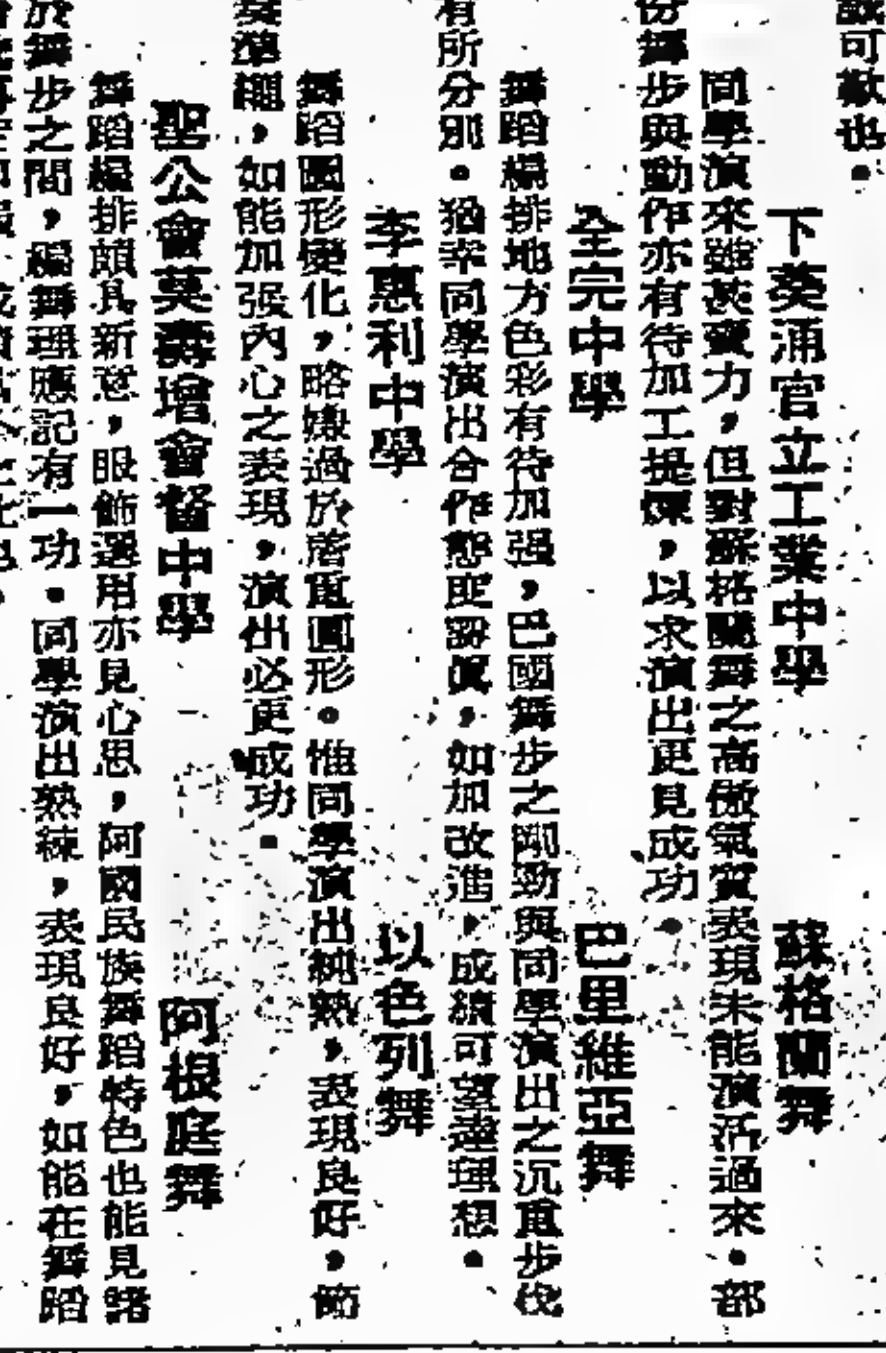 誠可歎也。
下葵涌官立工業中學 蘇格蘭舞
同學演來雖甚賣力，但對蘇格蘭舞之高傲氣質表現未能演活過來。部
份舞步與動作亦有待加工提煉，以求演出更見成功。
全完中學 巴里維亞舞
舞蹈編排地方色彩有待加强，巴國舞步之剛勁與同學演出之沉重步伐
有所分別。猶幸同學演出合作態度認眞，如加改進，成績可望達理想。
李惠利中學 以色列舞
舞蹈圖形變化，略嫌過於着重圖形。惟同學演出純熟，表現良好，節
奏準繩，如能加强內心之表現，演出必更成功。
聖公會莫壽增會督中學 阿根庭舞
舞蹈編排頗具新意，服飾選用亦見心思，阿國民族舞蹈特色也能見諸
於舞步之間，編舞理應記有一功。同學演出熟練，表現良好，如能在舞蹈